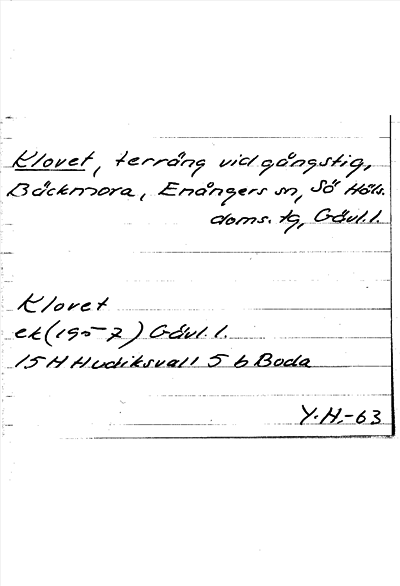 Klovet, terräng vid gångstig,
Bäckmora, Enångers sn, Sö Häls.
doms. tg, Gävl. l.
Klovet
ek (1957) Gävl. l.
15 H Hudiksvall 5 b Boda
Y. H. -63